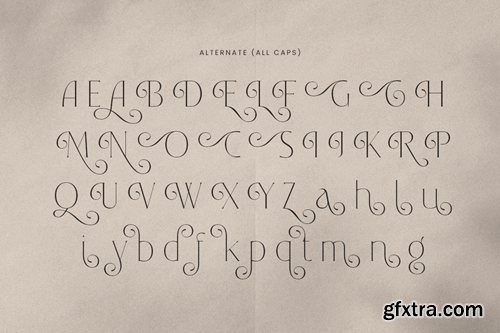 ALTERNATE (ALL CAPS)
A E A B D E L F G G H
M N O C S I I K R P
Q U V W X Y Z a h l u
i y b d f k p q t m n g
gfxtra.com